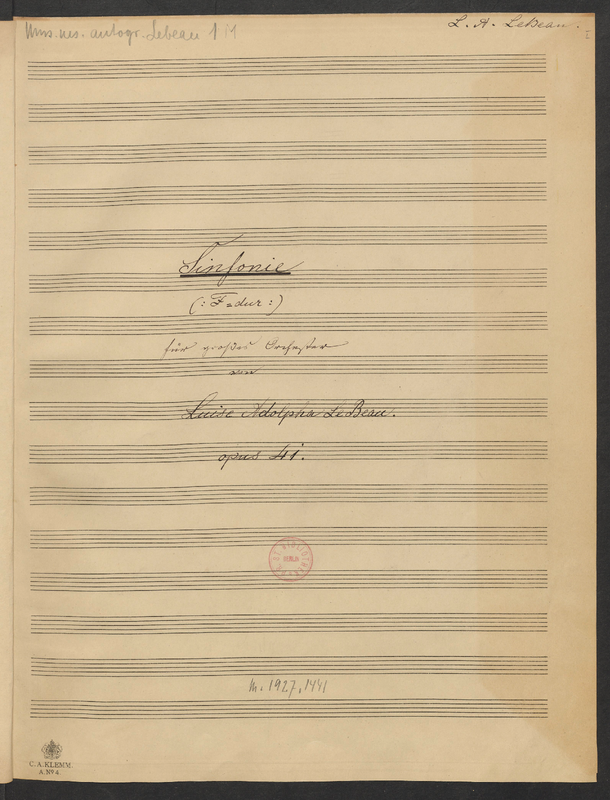 Mus. ms. autogr. Lebeau 1
L. A. LeBeau.
Sinfonie
(: F=dur :)
für großes Orchester
von
Luise Adolpha LeBeau.
opus 41.
M. 1927, 1441
C. A. KLEMM.
A. Nº 4.